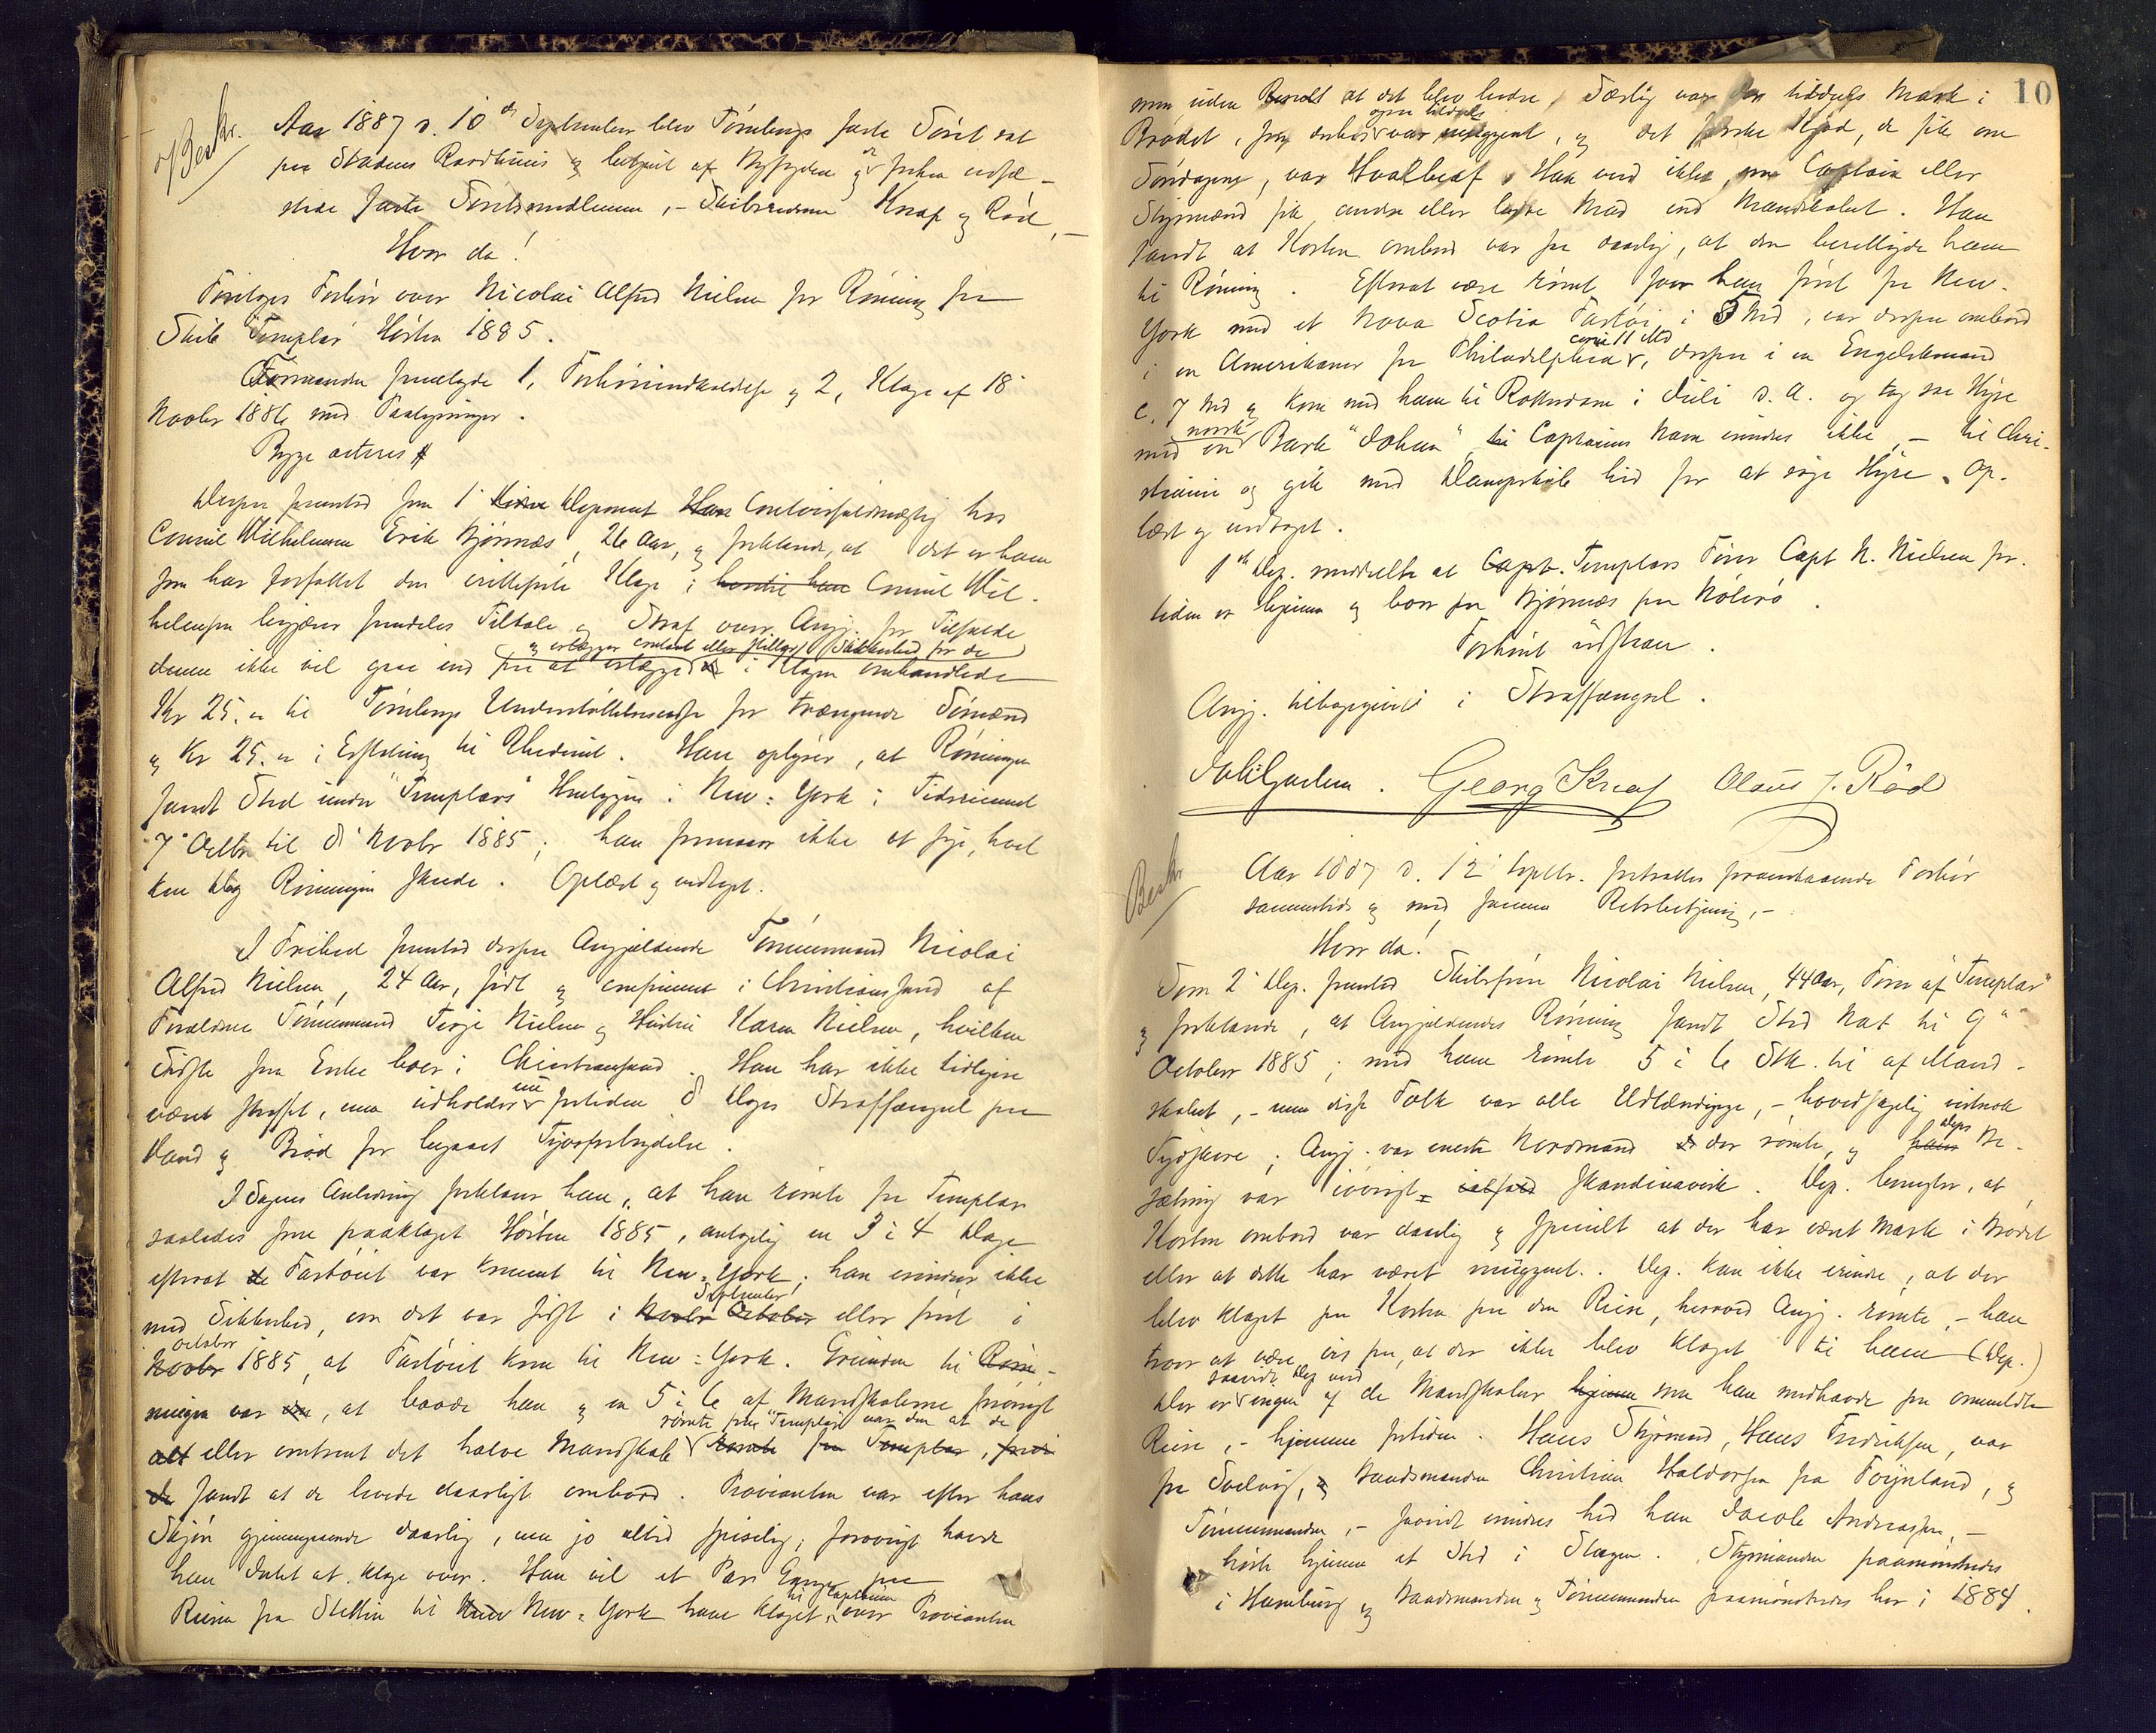 Beskr.
Aar 1887 d. 10de September blev Tönsbergs faste Söret sat
paa Stadens Raadhuus og betjent af Byfogden og de forhen udsee-
stede faste Söretsmedlemmer, - Skibsrederne Knap og Röd, -
Hvor da!
Foretoges Forhör over Nicolai Alfred Nielsen for Römning fra
Skib "Templar" Hösten 1885.
Formanden fremlagde 1, Forhörsindkaldelse og 2, Klage af 18'
Novbr 1886 med Paategninger.
Begge acteres
Derpaa fremstod som 1' Deponent Contoirfuldmægtig hos
Consul Wilhelmsen Erik Bjönnæs, 26 Aar, og forklarede, at det er ham
som har forfattet den Klage; Consul Wil-
helmsen begjærer fremdeles Tiltale og Straf over Angj. for Tilfælde
denne ikke vil gaae ind paa at erlægge i Klagen omhandlede
og erlægger contant eller stiller Sikkerhed for de
Kr 25. til Tönsbergs Understöttelseskasse for trængende Sömænd
og Kr 25. i Erstatning til Rhederiet. Han oplyser, at Römningen
fandt Sted under "Templars" Henliggen i New-York i Tidsrummet
7' Octbr til 8' Novbr 1885; han formaar ikke at sige, hvil-
ken Dag Römningen skeede. Oplæst og vedtaget.
I Frihed fremstod derpaa Angjældende Tömmermand Nicolai
Alfred Nielsen, 24 Aar, födt og confirmeret i Christianssand af
Forældrene Tömmermand Terje Nielsen og Hustru Karen Nielsen, hvilken
Sidste som Enke boer i Christianssand. Han har ikke tidligere
været straffet, men udholder nu fortiden 8 Dages Straffængsel paa
Vand og Bröd for begaaet Tyvsforbrydelse.
I Sagens Anledning forklarer han, at han römte fra Templar
saaledes som paaklaget Hösten 1885, antagelig en 3 à 4 Dage
efterat Fartöiet var kommet til New-York; han erindrer ikke
med Sikkerhed, om det var sidst i Novbr October September eller först i
Novbr october 1885, at Fartöiet kom til New-York. Grunden til Röm-
ningen var, at baade han og en 5 à 6 af Mandskaberne forövrigt
alt eller omtrent det halve Mandskab römte fra Templar var den at de
fandt at de levede daarligt ombord. Provianten var efter hans
Skjön gjennemgaaende daarlig, men jo altid spiselig; forövrigt havde
han Intet at klage over. Han vil et Par Gange paa
Reisen fra Stettin til New-York have klaget til Captainen over Provianten
10
men uden Resultat at det blev bedre. Særlig var der tildeels Mark i
Brödet, som desuden ogsaa tildeels var muggent, og det ferske Kjöd, de fik om
Söndagene, var Hvalbeaf. Han ved ikke, om Captain eller
Styrmænd fik andre eller bedre Mad end Mandskabet. Han
fandt at Kosten ombord var saa daarlig, at den berettigede ham
til Römning. Efterat være römt foer han först fra New-
York med et Nova Scotia Fartöi i 5 Md, var derpaa ombord
i en Amerikaner fra Philadelphia circa 11 Md, derpaa i en Engelskmand
c. 7 Md og kom med ham til Rotterdam i Juli d. A. og tog saa Hyre
med en norsk Bark "Johan", Captainens Navn erindres ikke, - til Chri-
stiania og gik med Dampskib hid for at söge Hyre. Op-
læst og vedtaget.
1ste Dep. meddelte at Templars Förer Capt N. Nielsen for-
tiden er hjemme og boer paa Bjönnæs paa Nöterö.
Forhöret udsat.
Angj. tilbagegivet i Straffængsel.
Georg Knap Olaus J. Röd
Beskr
Aar 1887 d. 12' Septbr. fortsattes foranstaaende Forhör
sammesteds og med samme Retsbetjening, -
Hvor da!
Som 2' Dep. fremstod Skibsförer Nicolai Nielsen, 44 Aar, Förer af "Templar"
og forklarede, at Angjældendes Römning fandt Sted Nat til 9'
October 1885; med ham römte 5 à 6 Stk. til af Mand-
skabet, - men disse Folk var alle Udlændinge, - hovedsagelig vistnok
Tydskere; Angj. var eneste Nordmand der römte, og Deps Be-
sætning var iövrigt Skandinavisk. Dep. benegter, at
Kosten ombord var daarlig og specielt at der har været Mark i Brödet
eller at dette har været muggent. Dep. kan ikke erindre, at der
blev klaget paa Kosten paa den Reise, hvorved Angj. römte, - han
troer at være vis paa, at der ikke blev klaget til ham (Dep.)
Der er saavidt Dep ved ingen af de Mandskaber som han medhavde paa ommeldte
Reise, - hjemme fortiden. Hans Styrmand, Hans Fredriksen, var
fra Svelvig, Baadsmanden Christian Haldorsen fra Föynland, og
Tömmermanden, - saavidt erindres hed han Jacob Andreassen, -
hörte hjemme et Sted i Slagen. Styrmanden paamönstredes
i Hamburg og Baadsmanden og Tömmermanden paamönstredes her i 1884.